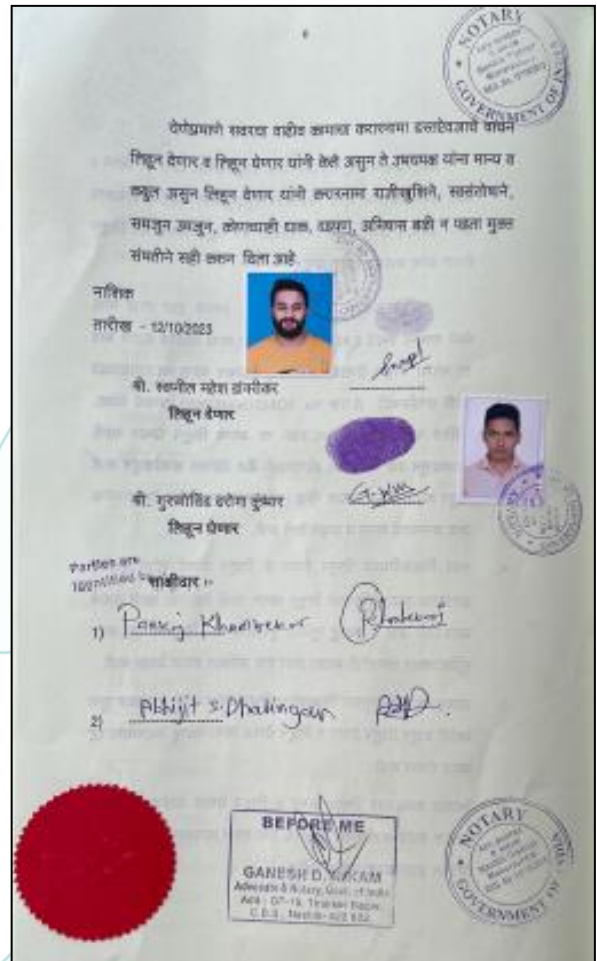 NOTARY
GOVERNMENT OF INDIA
येणेप्रमाणे सदरचा वाढीव कामाचा करारनामा दस्तऐवजाचे वाचन
लिहून देणार व लिहून घेणार यांनी केले असुन ते उभयमक्ष यांना मान्य व
कबुल असुन लिहून देणार यांनी करारनामा राजीखुशिने, स्वसंतोषाने,
समजुन उमजुन, कोणत्याही धाक, दडपण, बळी न पडता मुक्त
संमतीने सही करून दिला आहे.
नाशिक
तारीख - 12/10/2023
श्री. स्वप्नील महेश
लिहून देणार
श्री. गुरुगोविंद
लिहून घेणार
Parties are
Identified by
साक्षीदार :-
1) Pankaj
2) Abhijit S. Dhatingan
BEFORE ME
GANESH D. NIKAM
Advocate & Notary, Govt. of India
NOTARY
GOVERNMENT OF INDIA